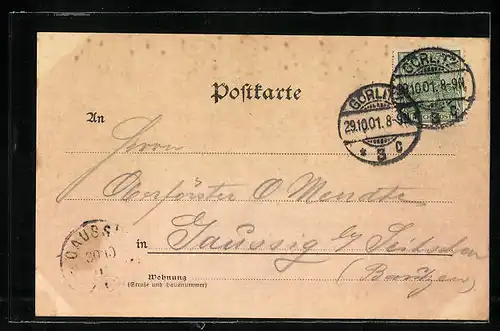 GÖRLITZ
29.10.01.8-9N.
* 3 c
GÖRLITZ
29.10.01.8-9N.
* 3 c
Postkarte
An
Herrn
Oberförster O Mendte
in Gaussig by Seitschen
(Bautzen)
GAUSSIG
30 10
Wohnung
(Straße und Hausnummer)